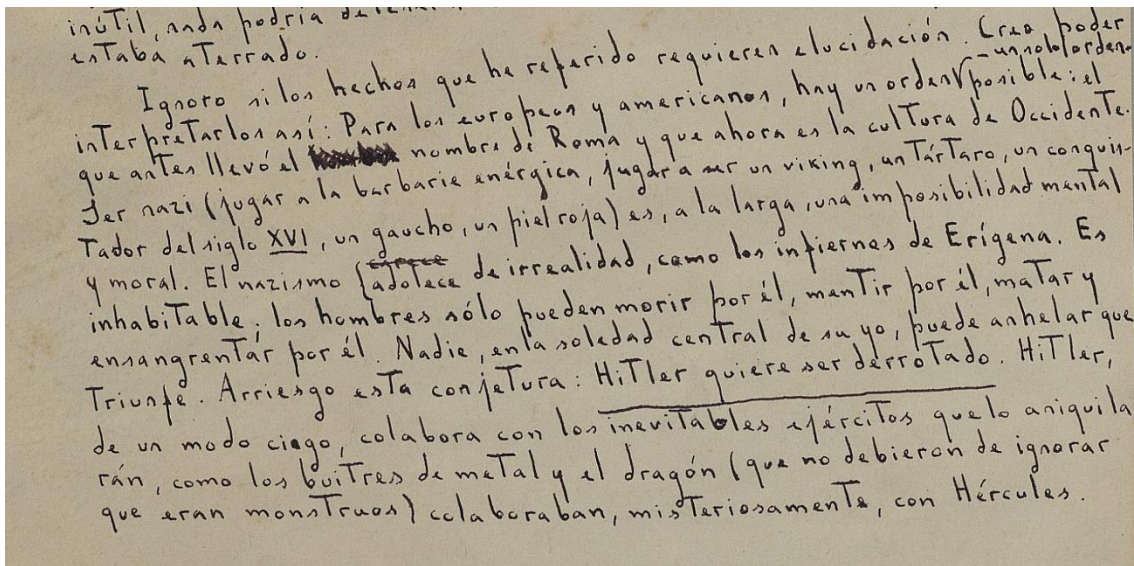 inútil, nada podría
estaba aterrado.
Ignoro si los hechos que he referido requieren elucidación. Creo poder
-un solo orden-
interpretarlos así: Para los europeos y americanos, hay un orden posible: el
que antes llevó el nombre de Roma y que ahora es la cultura de Occidente.
Ser nazi (jugar a la barbarie enérgica, jugar a ser un viking, un tártaro, un conquis-
tador del siglo XVI, un gaucho, un piel roja) es, a la larga, una imposibilidad mental
y moral. El nazismo {adolece de irrealidad, como los infiernos de Erígena. Es
inhabitable; los hombres sólo pueden morir por él, mentir por él, matar y
ensangrentar por él. Nadie, en la soledad central de su yo, puede anhelar que
triunfe. Arriesgo esta conjetura: Hitler quiere ser derrotado. Hitler,
de un modo ciego, colabora con los inevitables ejércitos que lo aniquila
rán, como los buitres de metal y el dragón (que no debieron de ignorar
que eran monstruos) colaboraban, misteriosamente, con Hércules.